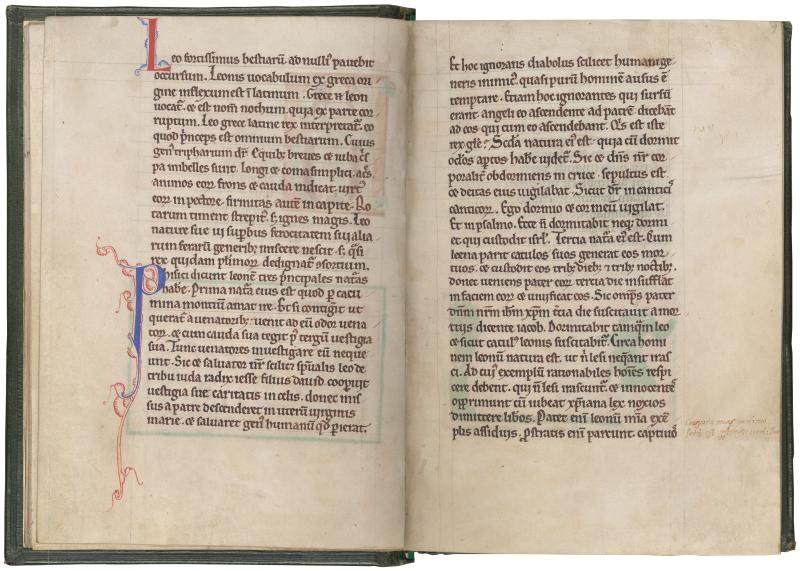 Leo fortissimus bestiarū. ad nullius pauebit
occursum. Leonis uocabulum ex greca ori
gine inflexum est ī latinum. Grece n̄ leon
uocat᷑. ⁊ est nom̄ nothum. quia ex parte cor
ruptum. Leo grece latine rex interpretat᷑. eo
quod p̄nceps est omnium bestiarum. Cuius
gen᷒ tripharium dr̄. Equib; breues ⁊ iuba
pa imbelles sunt. Longi ⁊ coma simplici. acs̄
animos eorū frons ⁊ cauda indicat. uirt᷒
eorū in pectore. firmitas autē in capite. Ro
tarum timent strepit᷒. s; ignes magis. Leo
nature sue ui supbus ferocitatem sui alia
rum ferarū generib; miscere nescit. s; q̄si
rex quidam plimorū dedignat᷑ ꝯsortium.
Phisici dicunt leonē tres p̄ncipales nat̄as
habe. Prima nat̄a eius est quod ꝑ cacu
mina montiū amat ire. Et si contiḡit ut
querat᷑ a uenatorib;. uenit ad eū odor uena
torū. ⁊ cum cauda sua tegit ꝑ tergū uestigia
sua. Tunc uenatores inuestigare eū neque
unt. Sic ⁊ saluator nr̄ scilic᷑ sp̄ualis leo de
tribu iuda radix iesse filius dauid cooꝑuit
uestigia sue caritatis in celis. donec mis
sus a patre descenderet in uterū uirginis
marie. ⁊ saluaret gen᷒ humanū qd̄ ꝑierat.
Et hoc ignorans diabolus scilicet humani ge
neris inimic᷒. quasi purū hominē ausus ē
temptare. Etiam hoc ignorantes qui sursū
erant angeli eo ascendente ad patrē. dicebāt
ad eos qui cum eo ascendebant. Qis est iste
rex gl̄e? Scd̄a natura ei᷒ est. quia cū dormit
oclos aꝑtos habe uidet᷑. Sic ⁊ dn̄s nr̄ cor
poralit᷑ obdormiens in cruce. sepultus est.
⁊ deitas eius uigilabat. Sicut dr̄ in cantic̄
canticorū. Ego dormio ⁊ cor meū uigilat.
Et in psalmo. Ecce n̄ dormitabit neq; dormi
et qui custodit isrl̄. Tercia nat̄a ei᷒ est. Cum
leena parit catulos suos generat eos mor
tuos. ⁊ custodit eos trib; dieb; ⁊ trib; noctib;.
donec ueniens pater eorū tercia die insufflat
in faciem eorū ⁊ uiuificat eos. Sic omps̄ pater
dn̄m nrm̄ ihm̄ xpm̄ t̄cia die suscitauit a mor
tuis dicente iacob. Dormitabit tamq̄m leo
⁊ sicut catul᷒ leonis suscitabit᷑. Circa homi
nem leonū natura est. ut n̄ lesi neq̄ant iras
ci. Ad cui᷒ exemplū rationabiles hoīes respi
cere debent. qui n̄ lesi irascunt᷑. ⁊ innocentes
opprimunt cū iubeat xp̄iana lex noxios
dimittere lib̄os. Patet enī leonū mīa exē
plis assiduis. ꝓstratis enī parcunt. captiuos